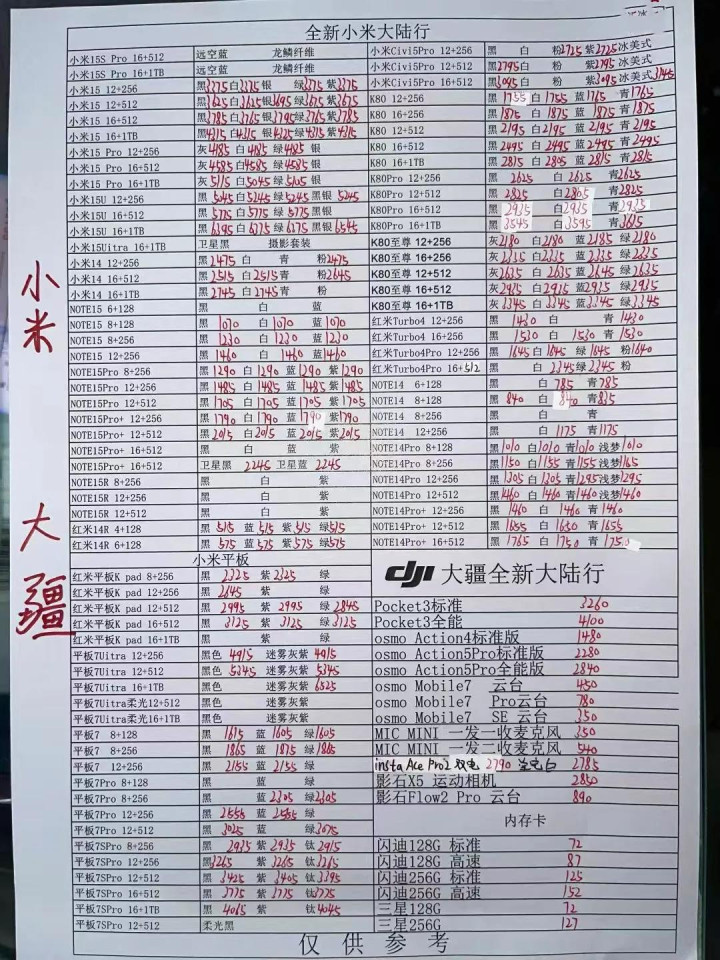 全新小米大陆行
小米15S Pro 16+512 远空蓝 龙鳞纤维
小米15S Pro 16+1TB 远空蓝 龙鳞纤维
小米15 12+256 黑3375白3375银 绿3375紫3375
小米15 12+512 黑3625白3625银3695绿3675紫3675
小米15 16+512 黑3785白3765银3795绿3765紫3785
小米15 16+1TB 黑4315白4315银4325绿4315紫4315
小米15 Pro 12+256 灰4185 白4185 绿4185 银
小米15 Pro 16+512 灰4585白4585 绿4585 银
小米15 Pro 16+1TB 灰5115白5045绿5105 银
小米15U 12+512 黑5045白5245绿5245黑银 5245
小米15U 16+512 黑5775白5775 绿5775 黑银
小米15U 16+1TB 黑6395白6375绿6375黑银6545
小米15Uitra 16+1TB 卫星黑 摄影套装
小米14 12+256 黑2475 白 青 粉2475
小米14 16+512 黑2515 白2515青 粉2645
小米14 16+1TB 黑2745 白2745青 粉
NOTE15 6+128 黑 白 蓝
NOTE15 8+128 黑 1070 白1070 蓝1070
NOTE15 8+256 黑 1230 白1230 蓝1230
NOTE15 12+256 黑 1460 白1460 蓝1460
NOTE15Pro 8+256 黑1290 白1290 蓝1290 紫1290
NOTE15Pro 12+256 黑1485 白1485 蓝1485紫1485
NOTE15Pro 12+512 黑1705 白1705 蓝1705 紫1705
NOTE15Pro+ 12+256 黑1790 白1790 蓝1790 紫1790
NOTE15Pro+ 12+512 黑2015 白2015 蓝2015 紫2015
NOTE15Pro+ 16+512 黑 白 蓝 紫
NOTE15Pro+ 16+512 卫星黑 2245 卫星蓝 2245
NOTE15R 8+256 黑 白 紫
NOTE15R 12+256 黑 白 紫
NOTE15R 12+512 黑 白 紫
红米14R 4+128 黑 515 蓝515 紫515 绿515
红米14R 6+128 黑 575 蓝575 紫575 绿575
小米平板
红米平板K pad 8+256 黑 2325 紫2325 绿
红米平板K pad 12+256 黑 2645 紫 绿
红米平板K pad 12+512 黑 2995 紫 2995 绿 2845
红米平板K pad 16+512 黑 3125 紫 3125 绿3125
红米平板K pad 16+1TB 黑 紫 绿
平板7Uitra 12+256 黑色 4915 迷雾灰紫 4915
平板7Uitra 12+512 黑色 5345 迷雾灰紫 5345
平板7Uitra 16+1TB 黑色 迷雾灰紫 6525
平板7Uitra柔光12+512 黑色 迷雾灰紫
平板7Uitra柔光16+1TB 黑色 迷雾灰紫
平板7 8+128 黑 1615 蓝 1605 绿1605
平板7 8+256 黑 1865 蓝 1875 绿1865
平板7 12+256 黑 2155 蓝 2155 绿
平板7Pro 8+128 黑 蓝 绿
平板7Pro 8+256 黑 蓝2305 绿2305
平板7Pro 12+256 黑 2555 蓝 2585 绿
平板7Pro 12+512 黑 3025 蓝 绿3075
平板7SPro 8+256 黑 2935 紫 2935 钛2915
平板7SPro 12+256 黑3265 紫 3265 钛3265
平板7SPro 12+512 黑 3425 紫 3405 钛3395
平板7SPro 16+512 黑 3775 紫 3775 钛3775
平板7SPro 16+1TB 黑 4015 紫 钛4045
平板7SPro 12+512 柔光黑
小米Civi5Pro 12+256 黑 白 粉2725紫2725冰美式
小米Civi5Pro 12+512 黑2795白 粉 紫2795 冰美式
小米Civi5Pro 16+512 黑3095白 粉 紫3095冰美式3145
K80 12+256 黑 1755 白 1755 蓝1765 青1765
K80 16+256 黑 1875 白 1875 蓝1875 青1875
K80 12+512 黑 2195 白2195 蓝2195 青2195
K80 16+512 黑 2495 白2495 蓝2495 青2495
K80 16+1TB 黑 2815 白 2805 蓝2815 青2815
K80Pro 12+256 黑 2625 白2625 青2625
K80Pro 12+512 黑 2825 白2805 青2825
K80Pro 16+512 黑 2935 白2935 青2935
K80Pro 16+1TB 黑 3545 白3595 青3615
K80至尊 12+256 灰2180 白2180 蓝2185 绿2180
K80至尊 16+256 灰2335 白2335 蓝2335 绿2335
K80至尊 12+512 灰2635 白2635 蓝2645 绿2635
K80至尊 16+512 灰2935 白2935 蓝2935 绿2935
K80至尊 16+1TB 灰3345 白3345 蓝3345 绿3345
红米Turbo4 12+256 黑 1430 白 青 1430
红米Turbo4 16+256 黑 1530 白1530 青1530
红米Turbo4Pro 12+256 黑 1645 白1645 绿1645 粉1640
红米Turbo4Pro 16+512 黑 白2345绿2345 粉
NOTE14 6+128 黑 白 785 青785
NOTE14 8+128 黑 840 白 840 青835
NOTE14 8+256 黑 白 青
NOTE14 12+256 黑 白 1175 青1175
NOTE14Pro 8+128 黑1010 白1010 青1010 浅梦1010
NOTE14Pro 8+256 黑1150 白1155 青1155浅梦1165
NOTE14Pro 12+256 黑1305 白1305 青1295浅梦1295
NOTE14Pro 12+512 黑1460 白1460 青1460浅梦1460
NOTE14Pro+ 12+256 黑 1460 白 1460 青 1460
NOTE14Pro+ 12+512 黑 1655 白 1650 青 1655
NOTE14Pro+ 16+512 黑 1765 白 1750 青 1750
dji 大疆全新大陆行
Pocket3标准 3260
Pocket3全能 4100
osmo Action4标准版 1480
osmo Action5Pro标准版 2280
osmo Action5Pro全能版 2840
osmo Mobile7 云台 450
osmo Mobile7 Pro云台 780
osmo Mobile7 SE 云台 350
MIC MINI 一发一收麦克风 350
MIC MINI 一发二收麦克风 540
insta Ace Pro2 双电 2790 单电白 2785
影石X5 运动相机 2850
影石Flow2 Pro 云台 890
内存卡
闪迪128G 标准 72
闪迪128G 高速 87
闪迪256G 标准 125
闪迪256G 高速 152
三星128G 72
三星256G 127
仅供参考
小米
大疆